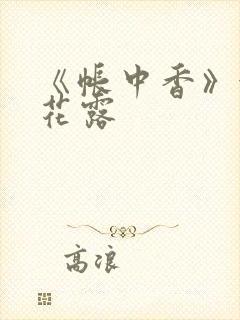 《帐中香》
花露
高浪